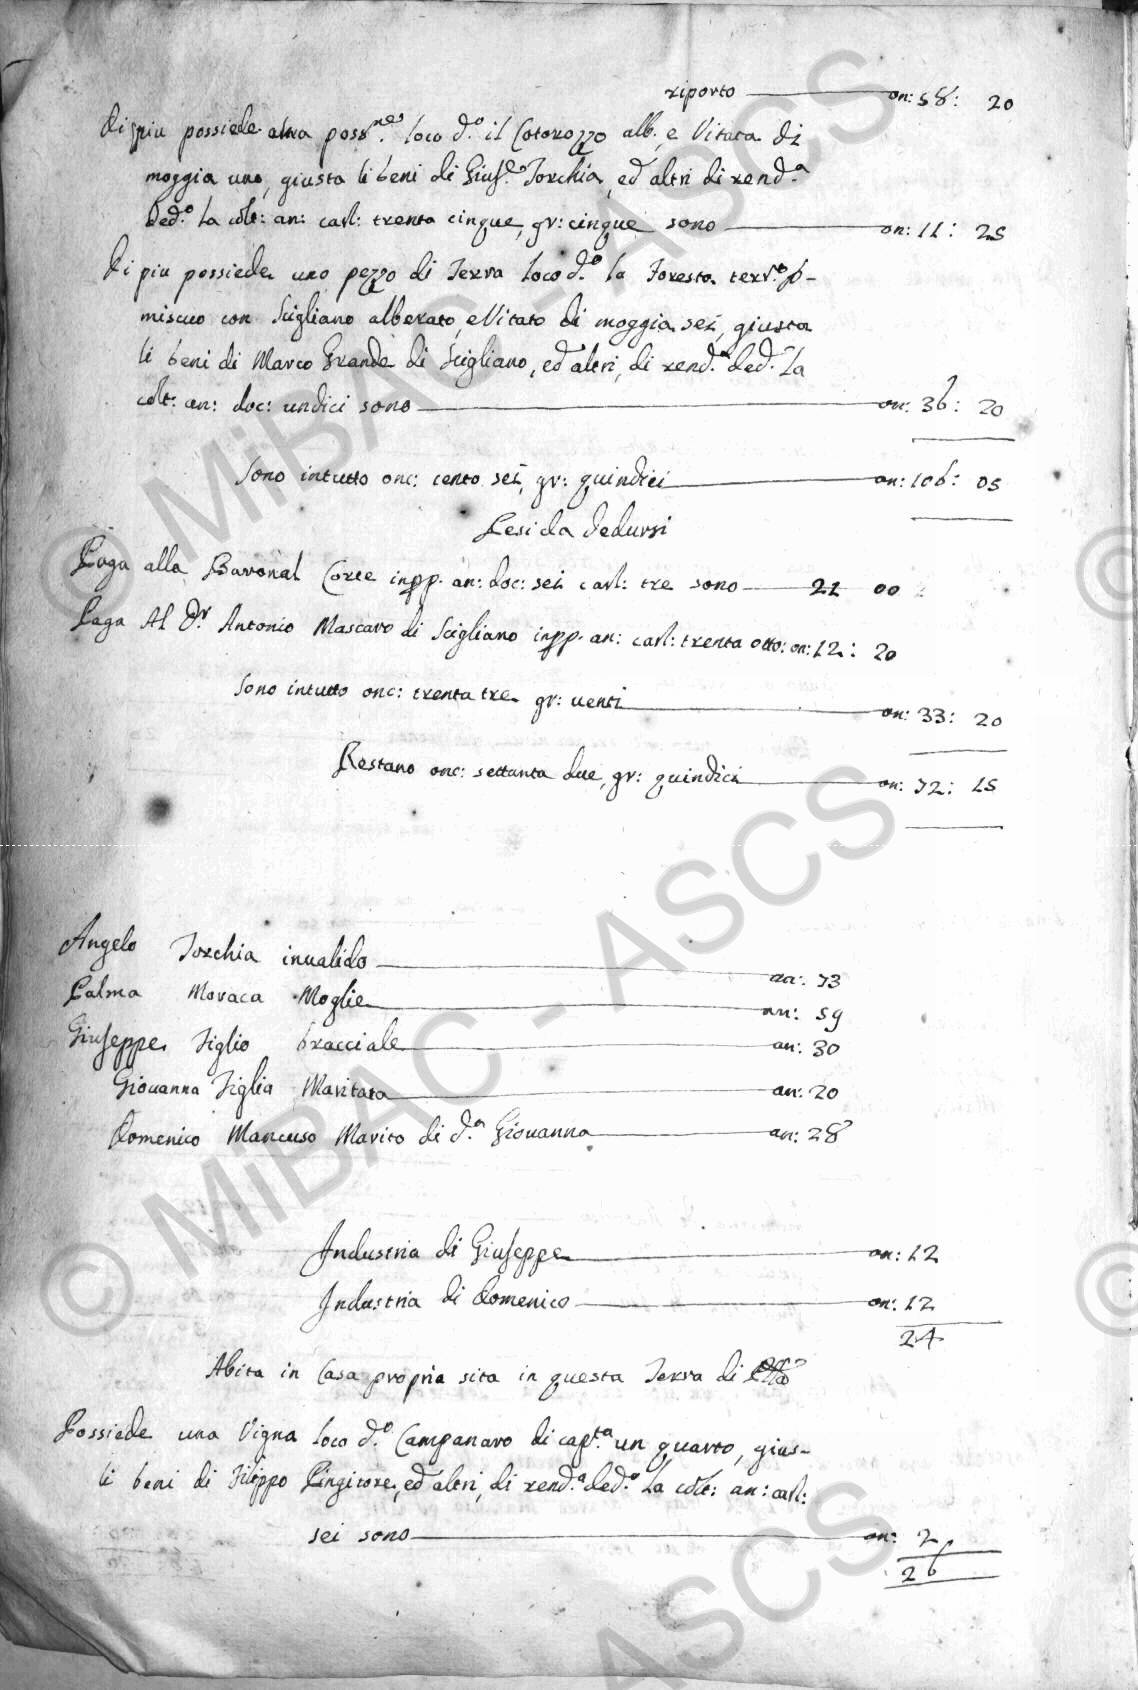 riporto on: 58: 20
di piu possiede altra poss.nes loco d.o il Cotorozzo alb., e Vitata di
moggia uno, giusta li beni di Gius.e Torchia, ed altri di rend.a
ded.o la colt: an: carl: trenta cinque, gr: cinque sono on: 11: 25
di piu possiede uno pezzo di Terra loco d.o la Foresta terr.o p-
miscuo con Scigliano alberato, e Vitato di moggia sei, giusta
li beni di Marco Grande di Scigliano, ed altri, di rend.a ded.a la
colt: an: doc: undici sono on: 36: 20
Sono intutto onc: cento sei, gr: quindici on: 106: 05
Pesi da dedursi
Paga alla Baronal Corte inpp. an: doc: sei carl: tre sono 21 00
Paga Al Dr. Antonio Mascaro di Scigliano inpp. an: carl: trenta otto: on: 12: 20
Sono intutto onc: trenta tre gr: venti on: 33: 20
Restano onc: settanta due, gr: quindici on: 72: 15
Angelo Torchia invalido an: 73
Palma Moraca Moglie an: 59
Giuseppe figlio bracciale an: 30
Giovanna figlia Maritata an: 20
Domenico Mancuso Marito di d.a Giovanna an: 28
Industria di Giuseppe on: 12
Industria di Domenico on: 12
24
Abita in Casa propria sita in questa Terra di
Possiede una Vigna loco d.o Campanaro di cap.ta un quarto, gius-
li beni di Filippo Pingitore, ed altri, di rend.a ded.o la colt: an: carl:
sei sono on: 2
26
© MiBAC - ASCS
© MiBAC - ASCS
ASCS